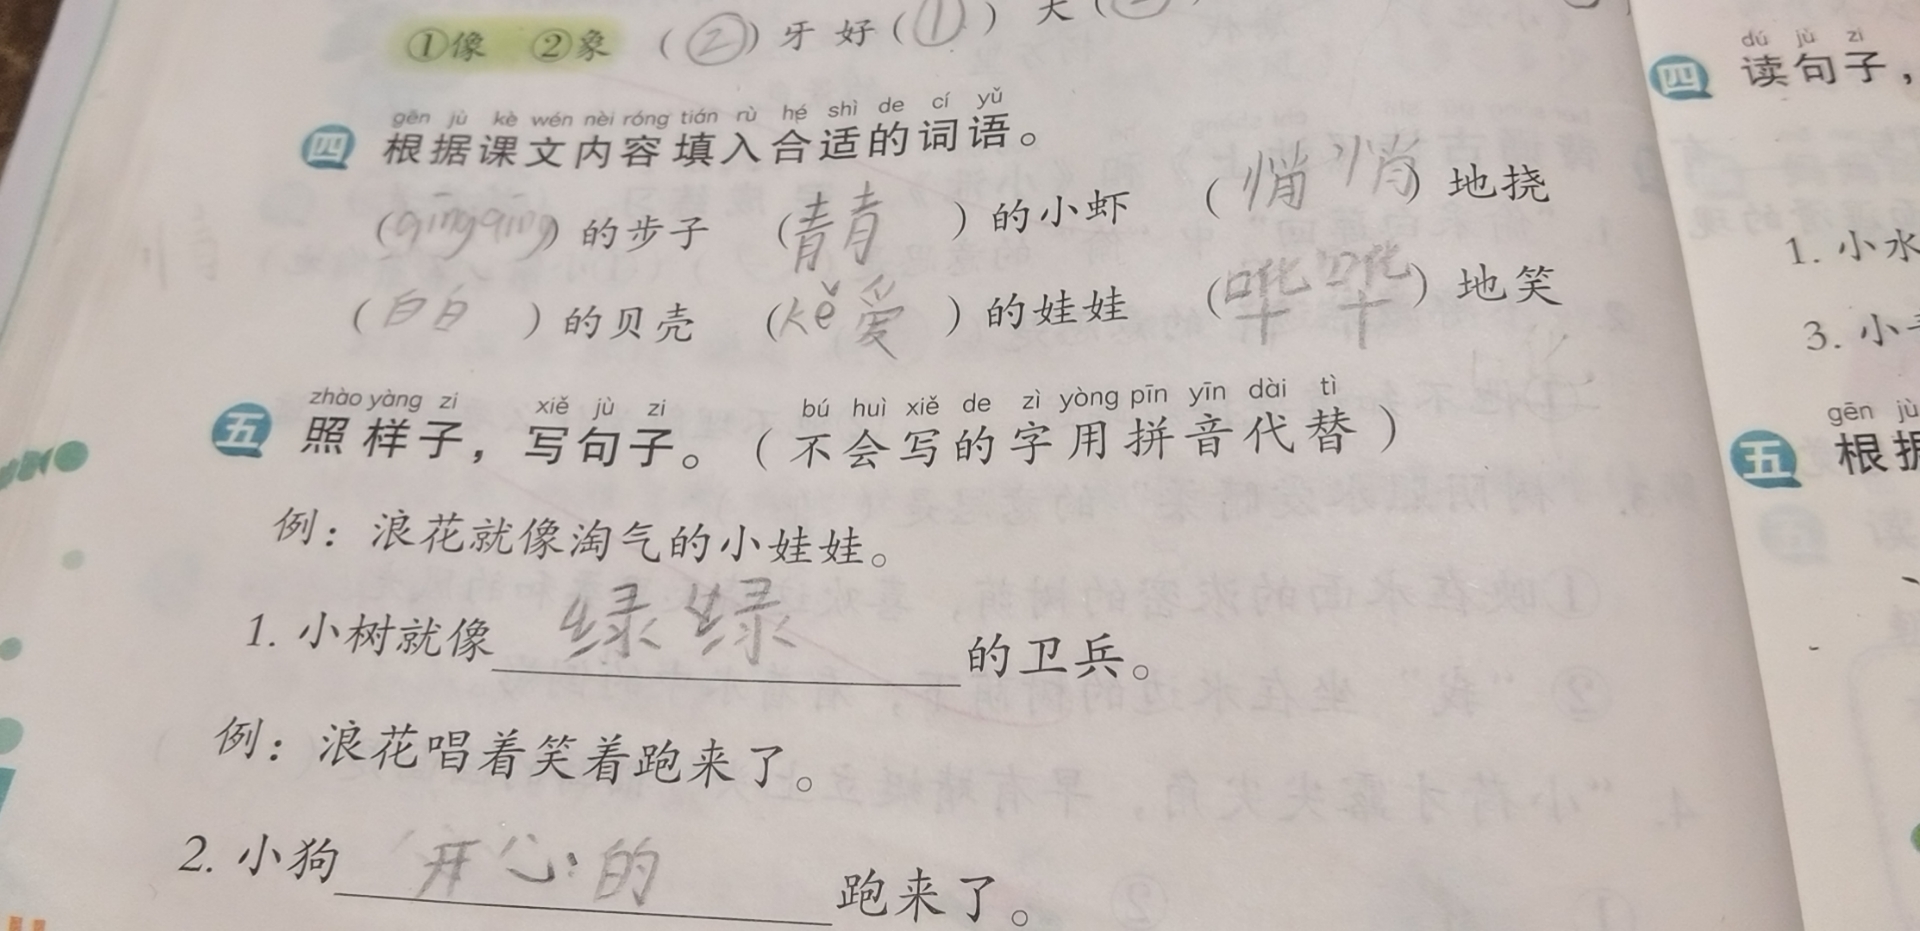 ①像 ②象 (②)牙 好(①)
gēn jù kè wén nèi róng tián rù hé shì de cí yǔ
四 根据课文内容填入合适的词语。
(qīngqīng)的步子 (青青)的小虾 (悄悄)地挠
(白白)的贝壳 (kě爱)的娃娃 (哗哗)地笑
zhào yàng zi xiě jù zi bú huì xiě de zì yòng pīn yīn dài tì
五 照样子，写句子。(不会写的字用拼音代替)
例：浪花就像淘气的小娃娃。
1. 小树就像绿绿的卫兵。
例：浪花唱着笑着跑来了。
2. 小狗开心的跑来了。
dú jù zi
四 读句子，
1. 小水
3. 小
gēn jù
五 根据